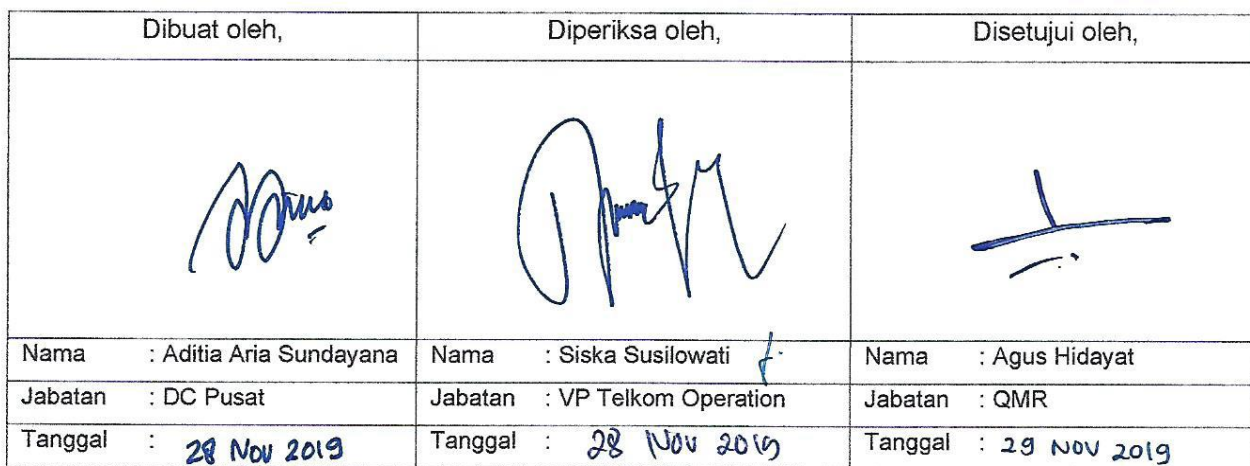 Dibuat oleh, Diperiksa oleh, Disetujui oleh,
Nama : Aditia Aria Sundayana Nama : Siska Susilowati Nama : Agus Hidayat
Jabatan : DC Pusat Jabatan : VP Telkom Operation Jabatan : QMR
Tanggal : 28 Nov 2019 Tanggal : 28 Nov 2019 Tanggal : 29 Nov 2019